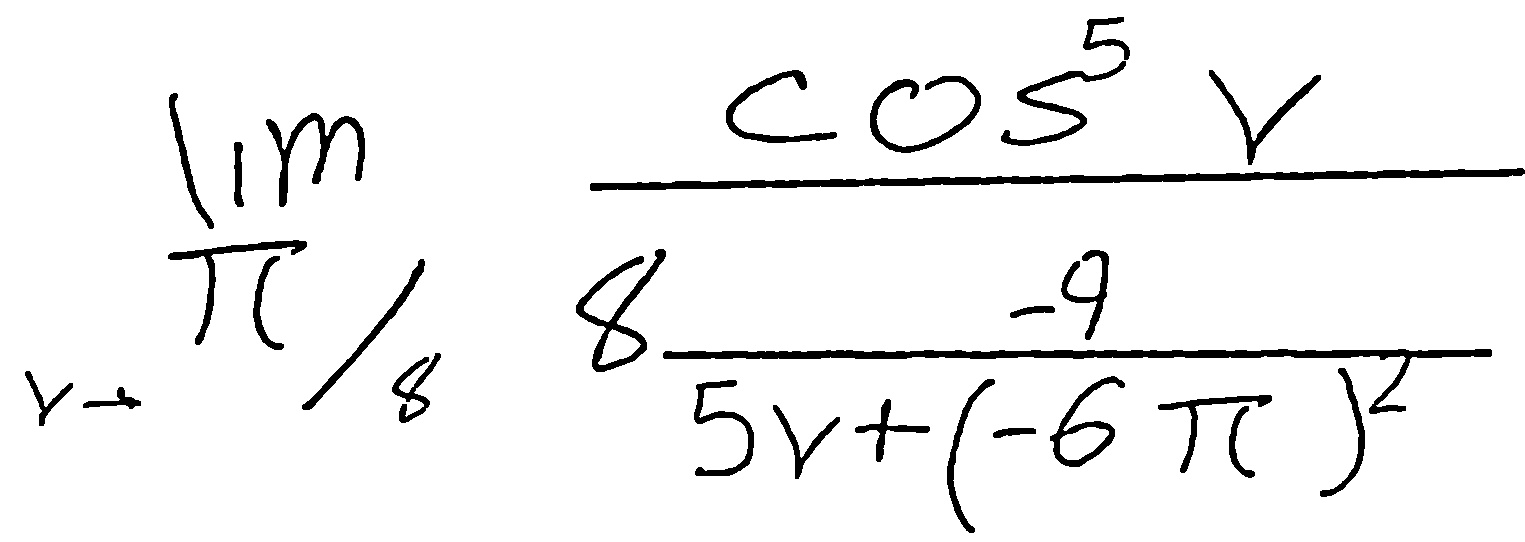 \lim_{v \to \pi/8} \frac{\cos^5 v}{8 \frac{-9}{5v + (-6\pi)^2}}